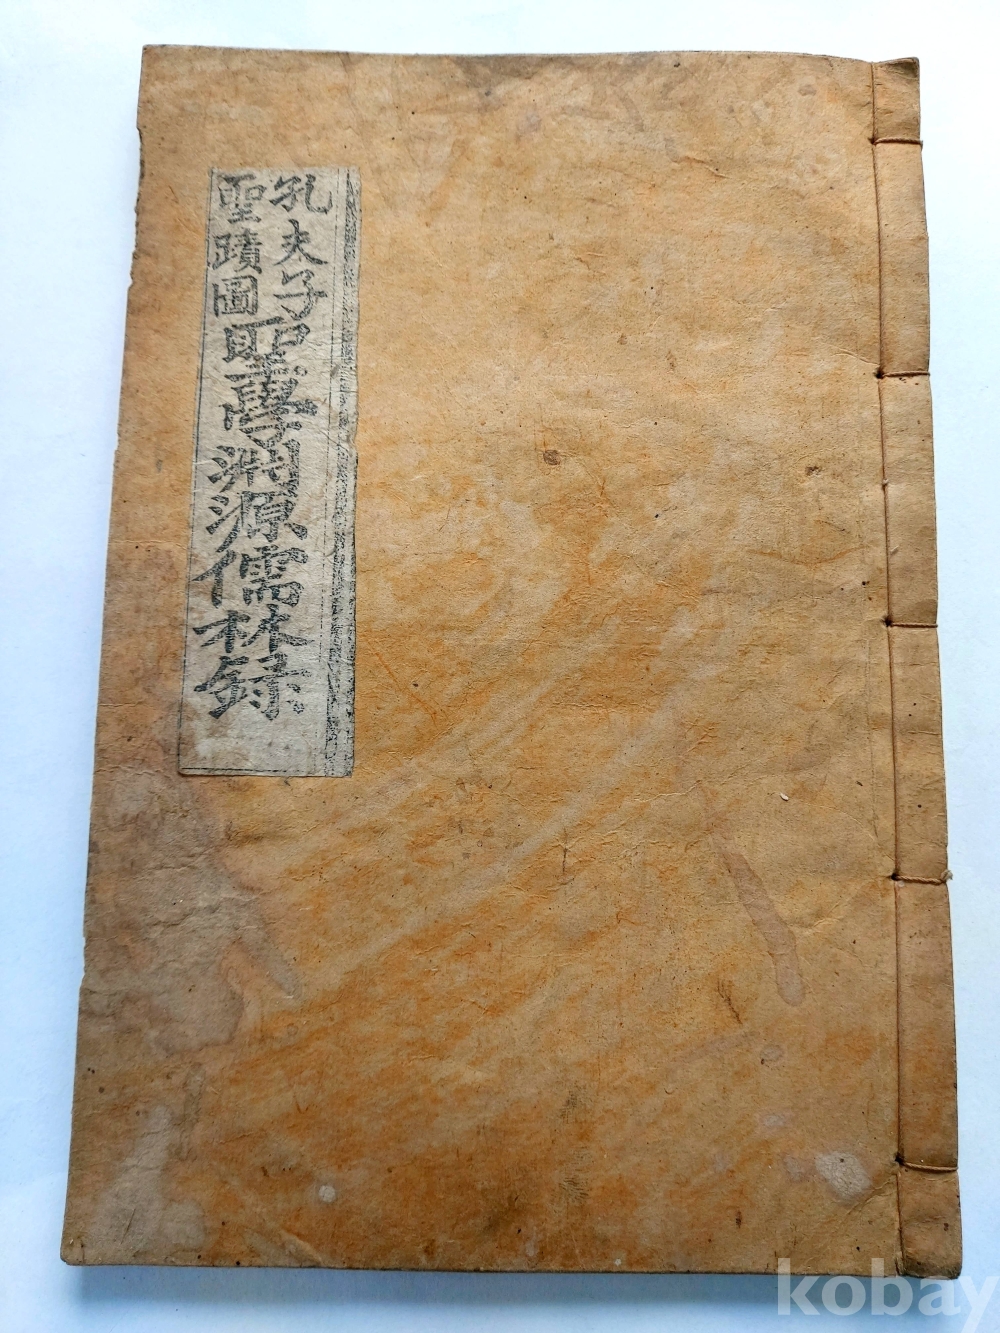 孔夫子
聖蹟圖
聖學淵源儒林錄
kobay